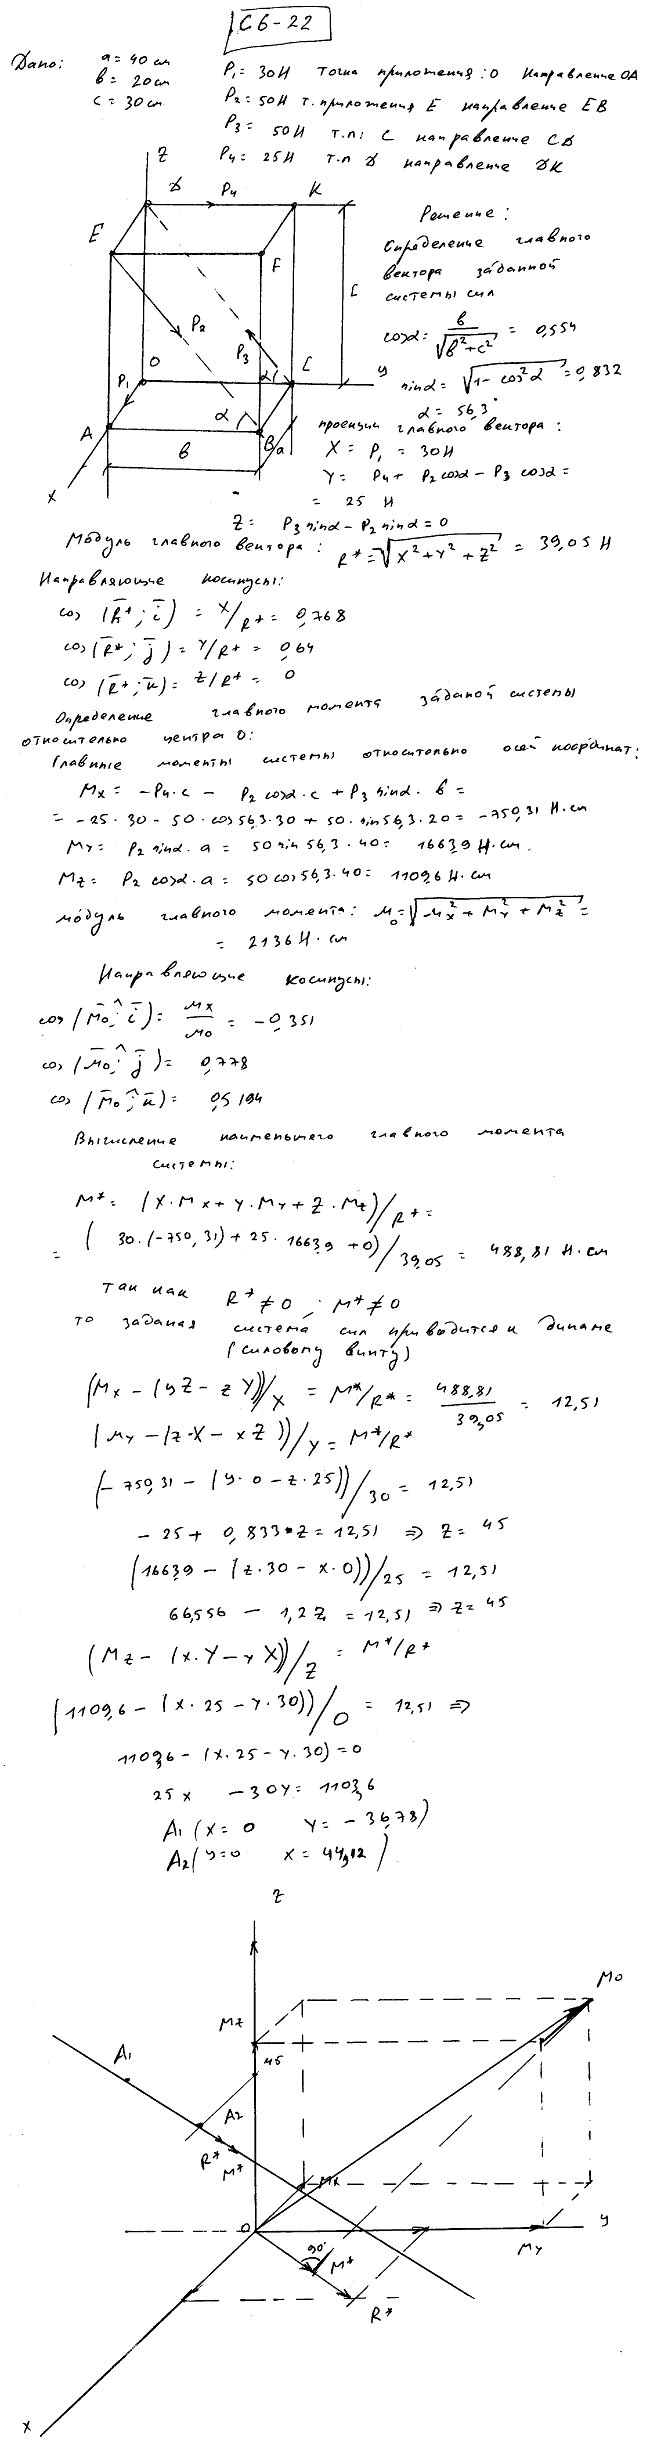 С6-22
Дано: a = 40 см
в = 20 см
c = 30 см
P₁ = 30Н точка приложения: O направление OA
P₂ = 50Н т. приложения E направление EB
P₃ = 50Н т.п: C направление CD
P₄ = 25Н т.п D направление DK
Z
D P₄ K
E
F
P₂
P₃
O
P₁
C
α
У
A
α
B
a
в
X
c
Решение:
Определение главного
вектора заданной
системы сил
cosα = в/√(в²+c²) = 0,554
sinα = √(1 - cos²α) = 0,832
α = 56,3°
проекции главного вектора:
X = P₁ = 30Н
Y = P₄ + P₂ cosα - P₃ cosα =
= 25 Н
Z = P₃ sinα - P₂ sinα = 0
Модуль главного вектора: R* = √(X² + Y² + Z²) = 39,05 Н
Направляющие косинусы:
cos (R̄*; ī) = X/R* = 0,768
cos (R̄*; j̄) = Y/R* = 0,64
cos (R̄*; к̄) = Z/R* = 0
Определение главного момента заданой системы
относительно центра O:
Главные моменты системы относительно осей координат:
Mx = -P₄·c - P₂ cosα·c + P₃ sinα·в =
= -25·30 - 50·cos56,3·30 + 50·sin56,3·20 = -750,31 Н·см
My = P₂ sinα·a = 50 sin56,3·40 = 1663,9 Н·см.
Mz = P₂ cosα·a = 50 cos56,3·40 = 1109,6 Н·см
модуль главного момента: M₀ = √(Mx² + My² + Mz²) =
= 2136 Н·см
Направляющие косинусы:
cos (M̄₀ ^; ī) = Mx/M₀ = -0,351
cos (M̄₀ ^; j̄) = 0,778
cos (M̄₀ ^; к̄) = 0,5194
Вычисление наименьшего главного момента
системы:
M* = (X·Mx + Y·My + Z·Mz)/R* =
= (30·(-750,31) + 25·1663,9 + 0)/39,05 = 488,81 Н·см
так как R* ≠ 0; M* ≠ 0
то заданая система сил приводится к динаме
(силовому винту)
(Mx - (yZ - zY))/X = M*/R* = 488,81/39,05 = 12,51
(My - (z·X - xZ))/Y = M*/R*
(-750,31 - (y·0 - z·25))/30 = 12,51
- 25 + 0,833·z = 12,51 ⇒ z = 45
(1663,9 - (z·30 - x·0))/25 = 12,51
66,556 - 1,2z = 12,51 ⇒ z = 45
(Mz - (x·Y - yX))/Z = M*/R*
(1109,6 - (x·25 - y·30))/0 = 12,51 ⇒
1109,6 - (x·25 - y·30) = 0
25x - 30y = 1103,6
A₁ (x = 0 y = -36,78)
A₂ (y = 0 x = 44,12)
Z
M₀
Mz
45
A₁
A₂
R*
M*
Mx
O
У
My
90°
M*
R*
X